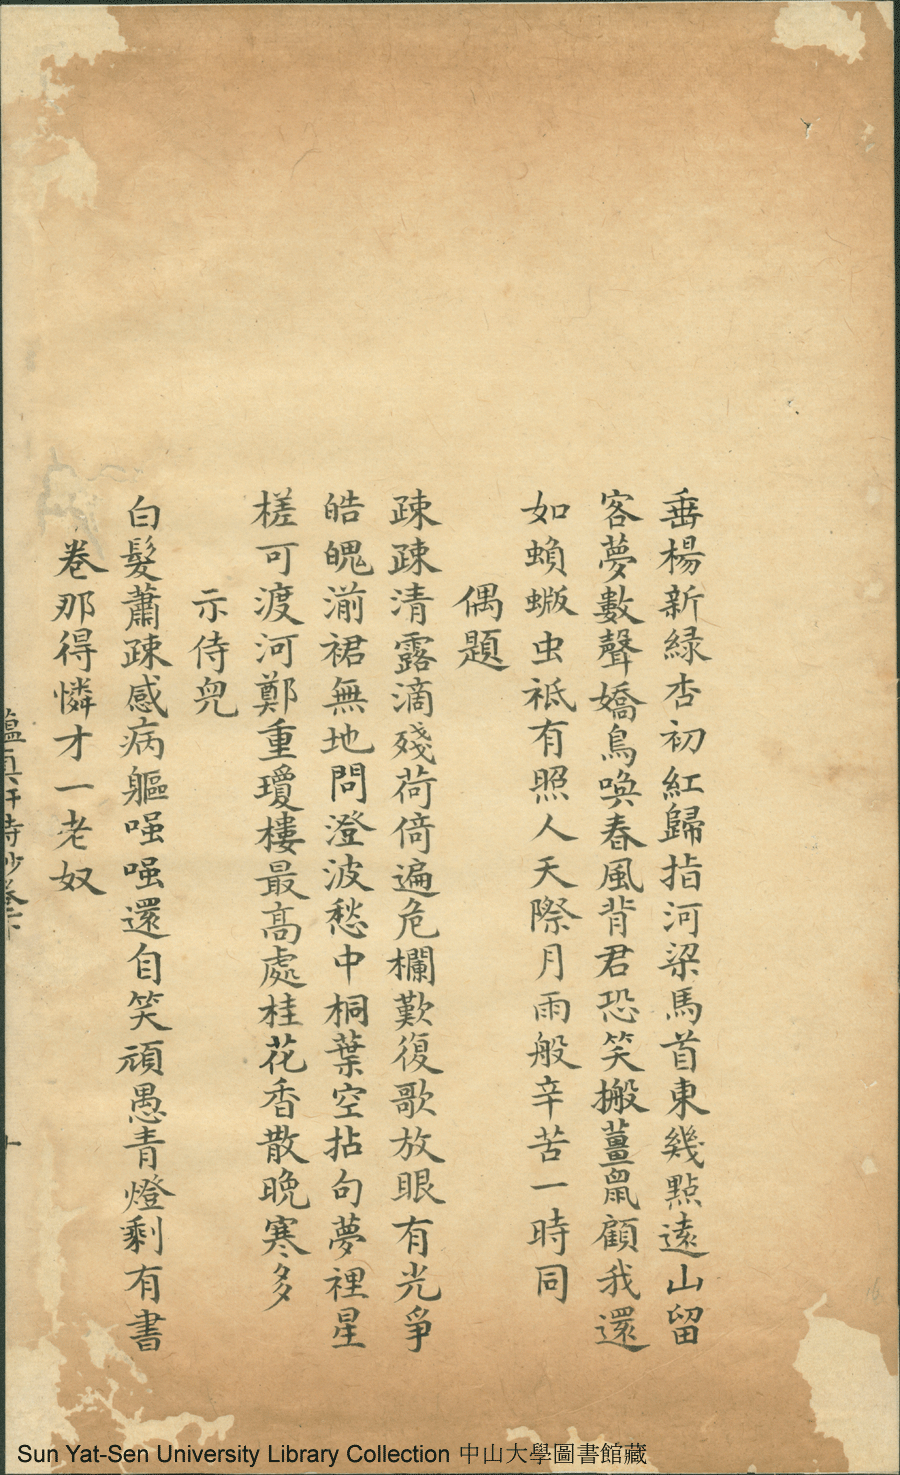 垂楊新緑杏初紅歸指河梁馬首東幾點遠山留
客夢數聲嬌鳥喚春風背君恐笑搬薑鼠顧我還
如蝜蝂虫祗有照人天際月雨般辛苦一時同
偶題
疎疎清露滴殘荷倚遍危欄歎復歌放眼有光爭
皓魄湔裙無地問澄波愁中桐葉空拈句夢裡星
槎可渡河鄭重瓊樓最高處桂花香散晚寒多
示侍兒
白髮蕭疎感病軀嗤嗤還自笑頑愚青燈剩有書
卷那得憐才一老奴
十
Sun Yat-Sen University Library Collection 中山大學圖書館藏